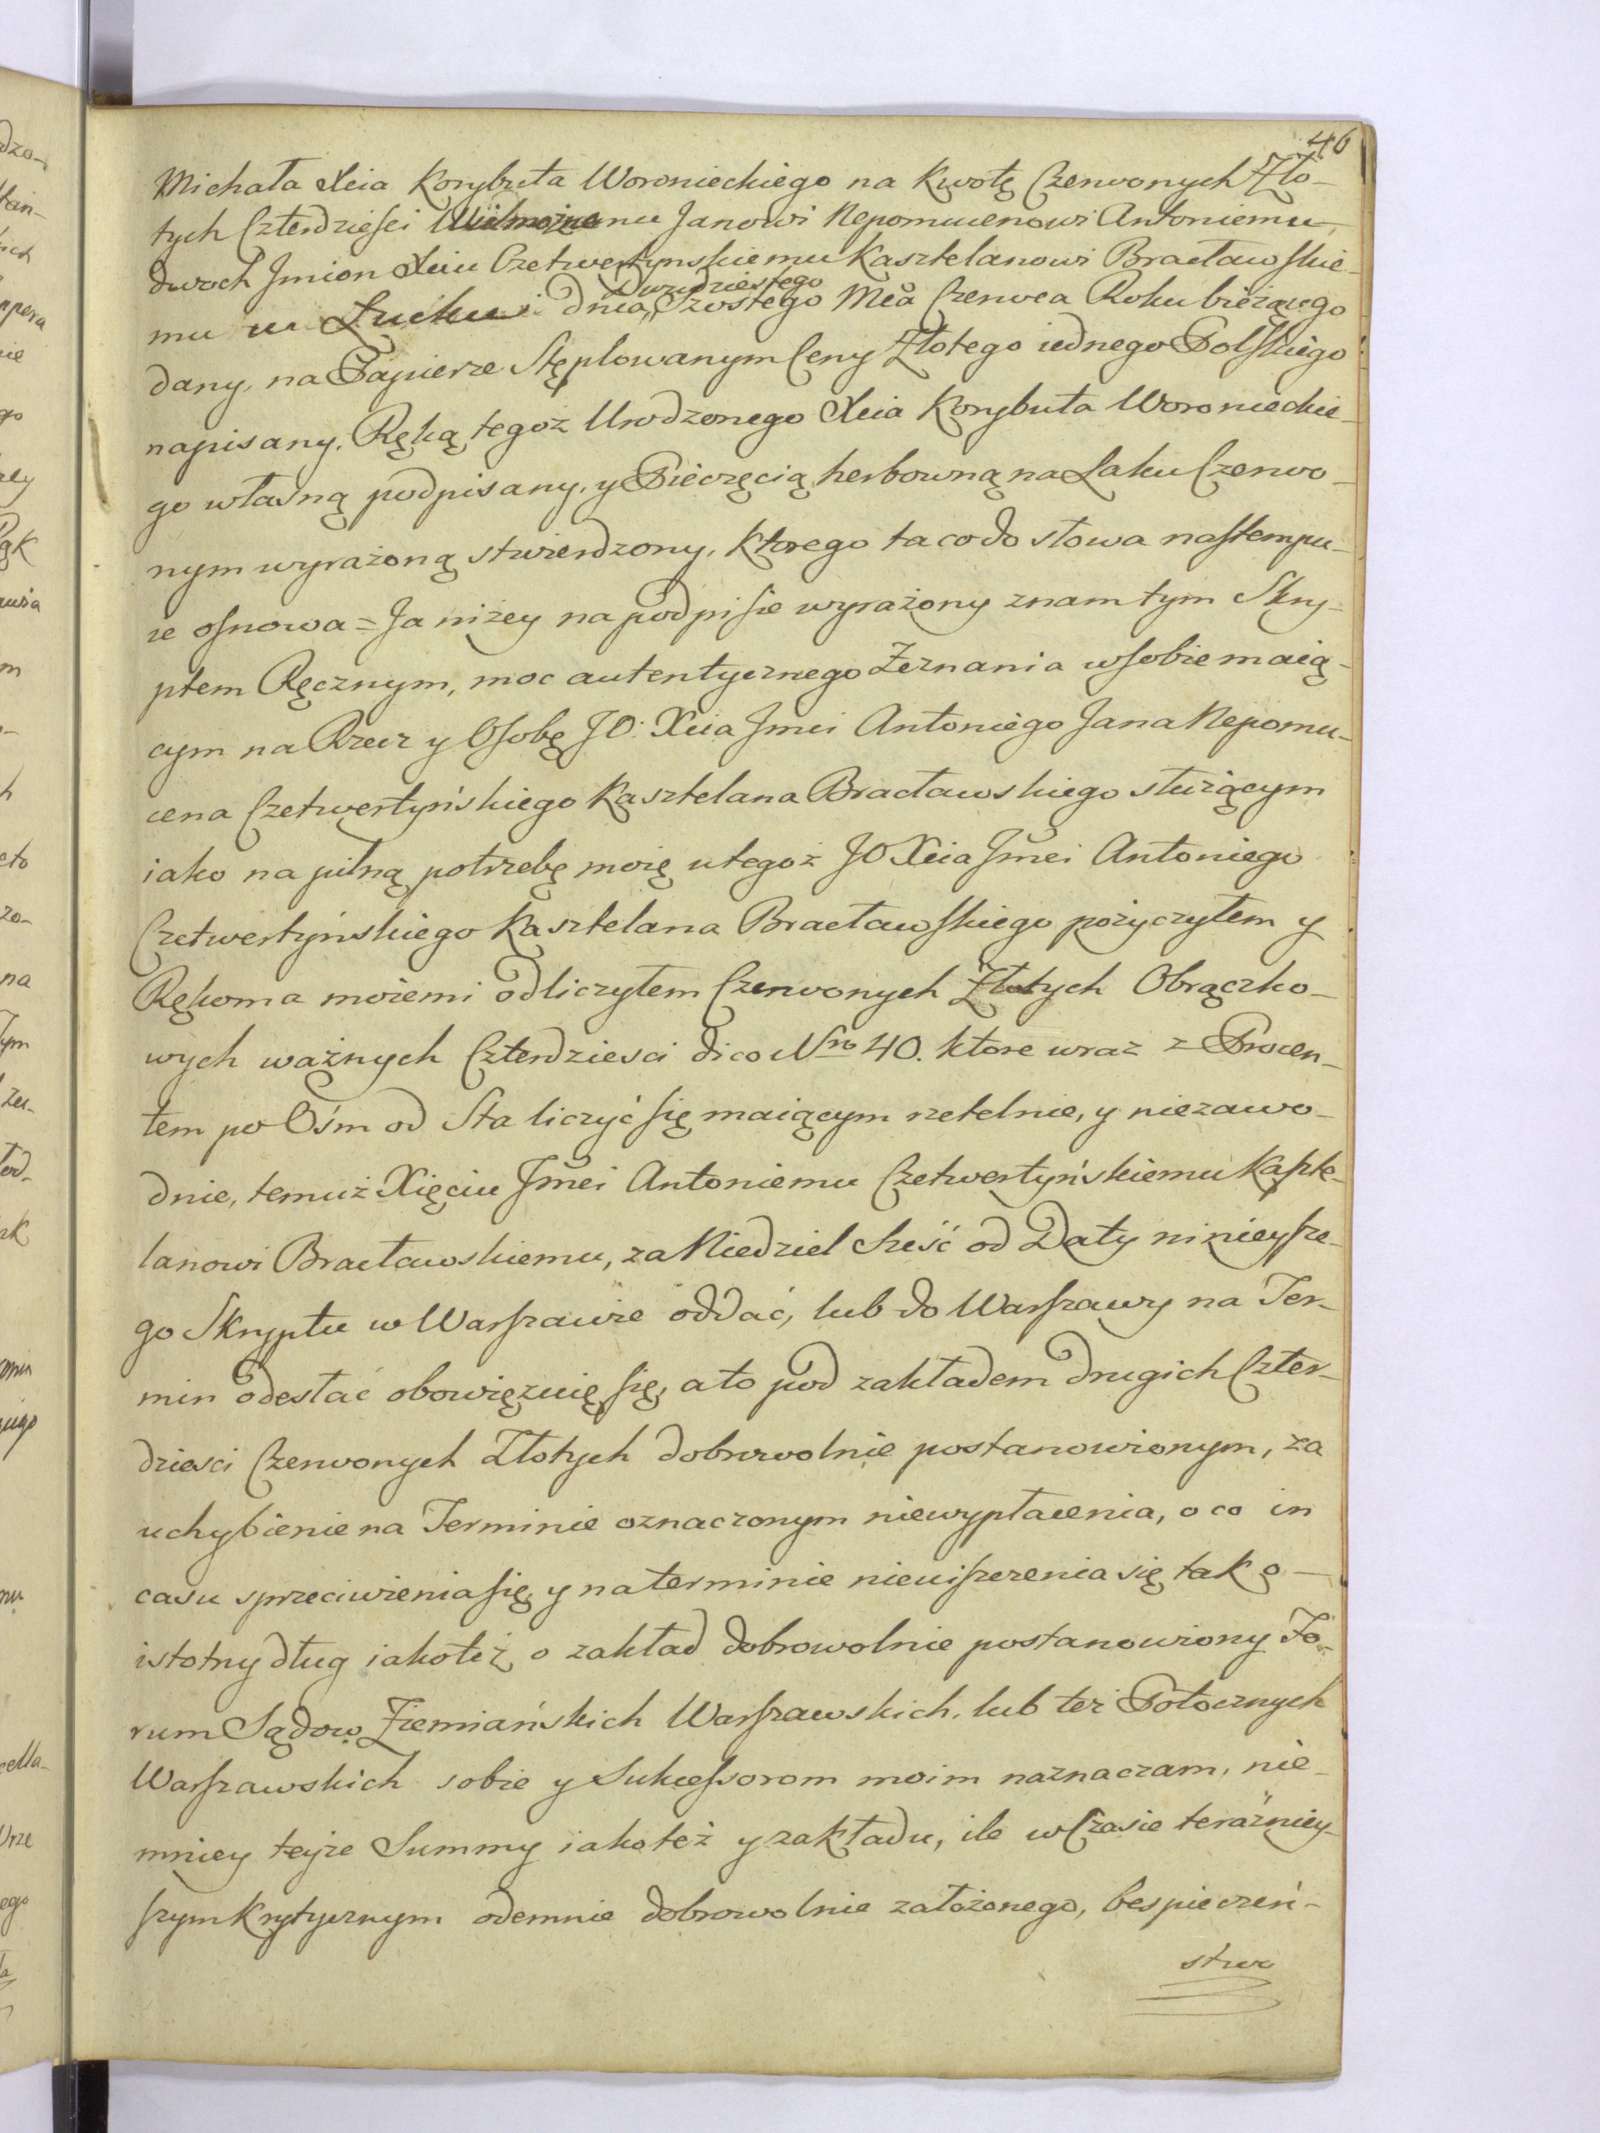 46
Michała Xcia Korybuta Woronieckiego na Kwotę Czerwonych Zło-
tych Czterdzieści Wielmożnemu Janowi Nepomucenowi Antoniemu,
dwoch Jmion Xciu Czetwertynskiemu Kasztelanowi Bracławskie-
Dwudziestego
mu w Łucku dnia Szostego Mca Czerwca Roku bieżącego
dany, na Papierze Stęplowanym Ceny Złotego iednego Polskiego
napisany, Ręką tegoż Urodzonego Xcia Korybuta Woronieckie-
go własną podpisany, y Pieczęcią herbowną na Laku Czerwo-
nym wyrażoną stwierdzony, ktorego ta co do słowa nastempu-
ie osnowa = Ja niżey na podpisie wyrażony znam tym Skry-
ptem Ręcznym, moc autentycznego Zeznania w sobie maią-
cym na Rzecz y Osobę JO: Xcia Jmci Antoniego Jana Nepomu-
cena Czetwertyńskiego Kasztelana Bracławskiego służącym
iako na pilną potrzebę moię u tegoż JO Xcia Jmci Antoniego
Czetwertyńskiego Kasztelana Bracławskiego pożyczyłem y
Rękoma moiemi odliczyłem Czerwonych Złotych Obrączko-
wych ważnych Czterdziesci dico Nro 40. ktore wraz z Procen-
tem po Ośm od Sta liczyć się maiącym rzetelnie, y niezawo-
dnie, temuż Xięciu Jmci Antoniemu Czetwertyńskiemu Kaszte-
lanowi Bracławskiemu, za Niedziel Sześć od Daty ninieysze-
go Skryptu w Warszawie oddać, lub do Warszawy na Ter-
min odesłać obowięzuię się, a to pod zakładem drugich Czter-
dziesci Czerwonych Złotych dobrowolnie postanowionym, za
uchybienie na Terminie oznaczonym niewypłacenia, o co in
casu sprzeciwienia się y na terminie nieuiszczenia się tak o
istotny dług iakoteż o zakład dobrowolnie postanowiony Fo-
rum Sądow Ziemiańskich Warszawskich, lub też Potocznych
Warszawskich sobie y Sukcessorom moim naznaczam, nie-
mniey teyże Summy iakoteż y zakładu, ile w Czasie teraźniey-
szym krytycznym odemnie dobrowolnie założonego, bespieczeń-
stwo